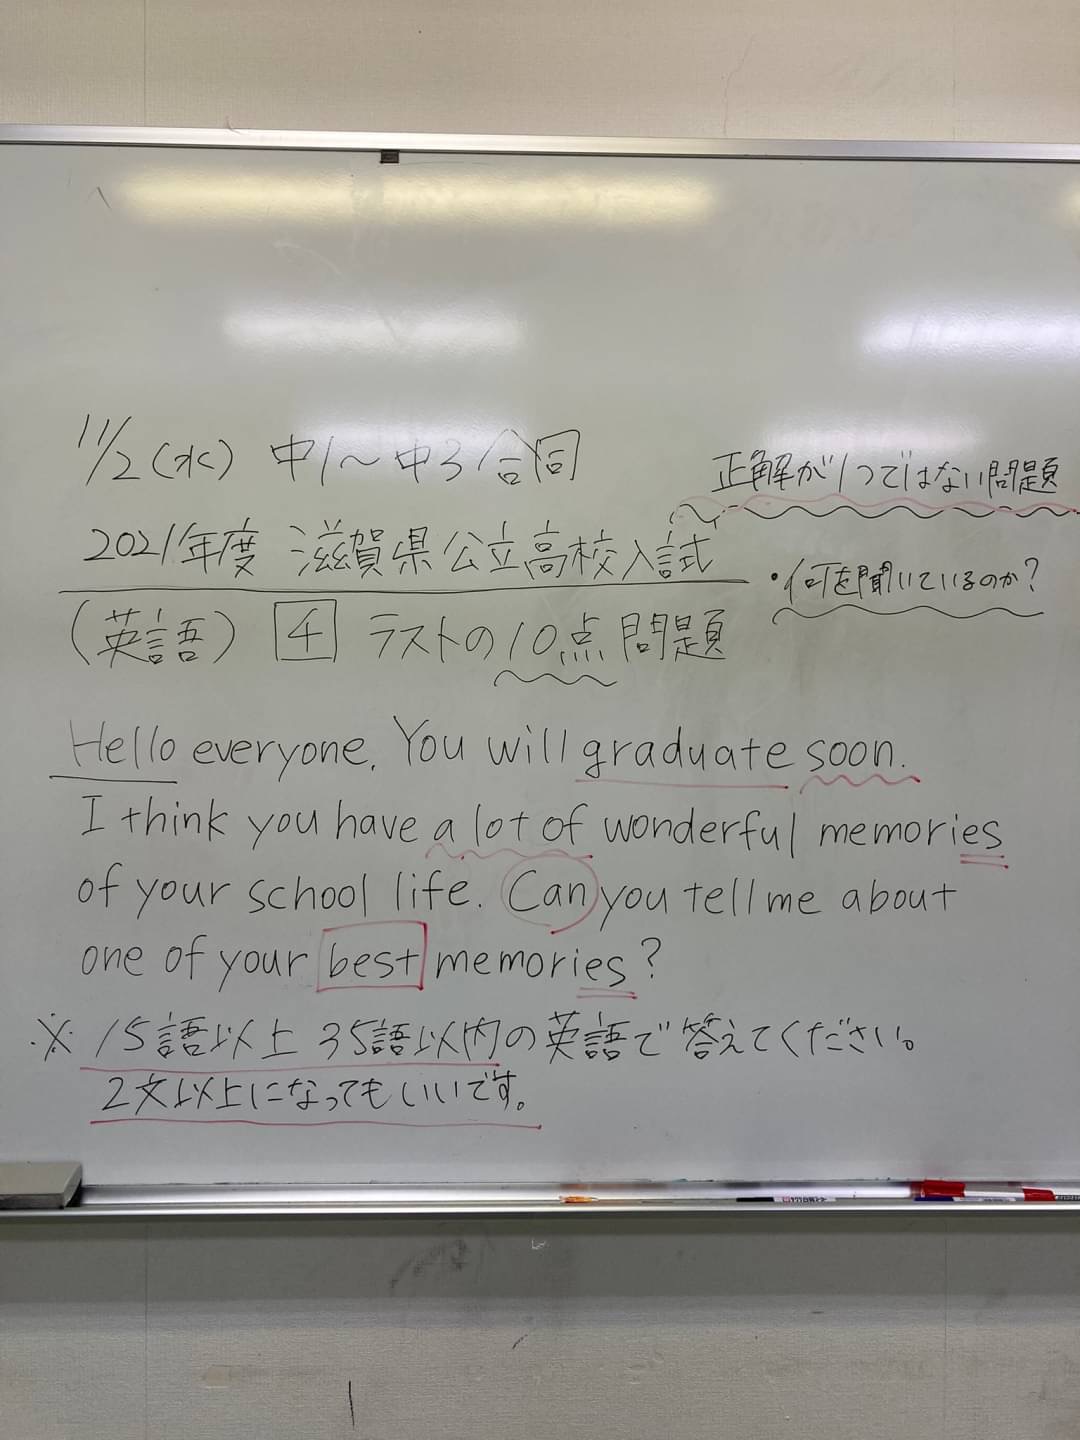 11/2(水) 中1〜中3合同
正解が1つではない問題
2021年度 滋賀県公立高校入試
・何を聞いているのか?
(英語) 4 ラストの10点問題
Hello everyone. You will graduate soon.
I think you have a lot of wonderful memories
of your school life. Can you tell me about
one of your best memories?
※ 15語以上 35語以内の英語で答えてください。
2文以上になってもいいです。